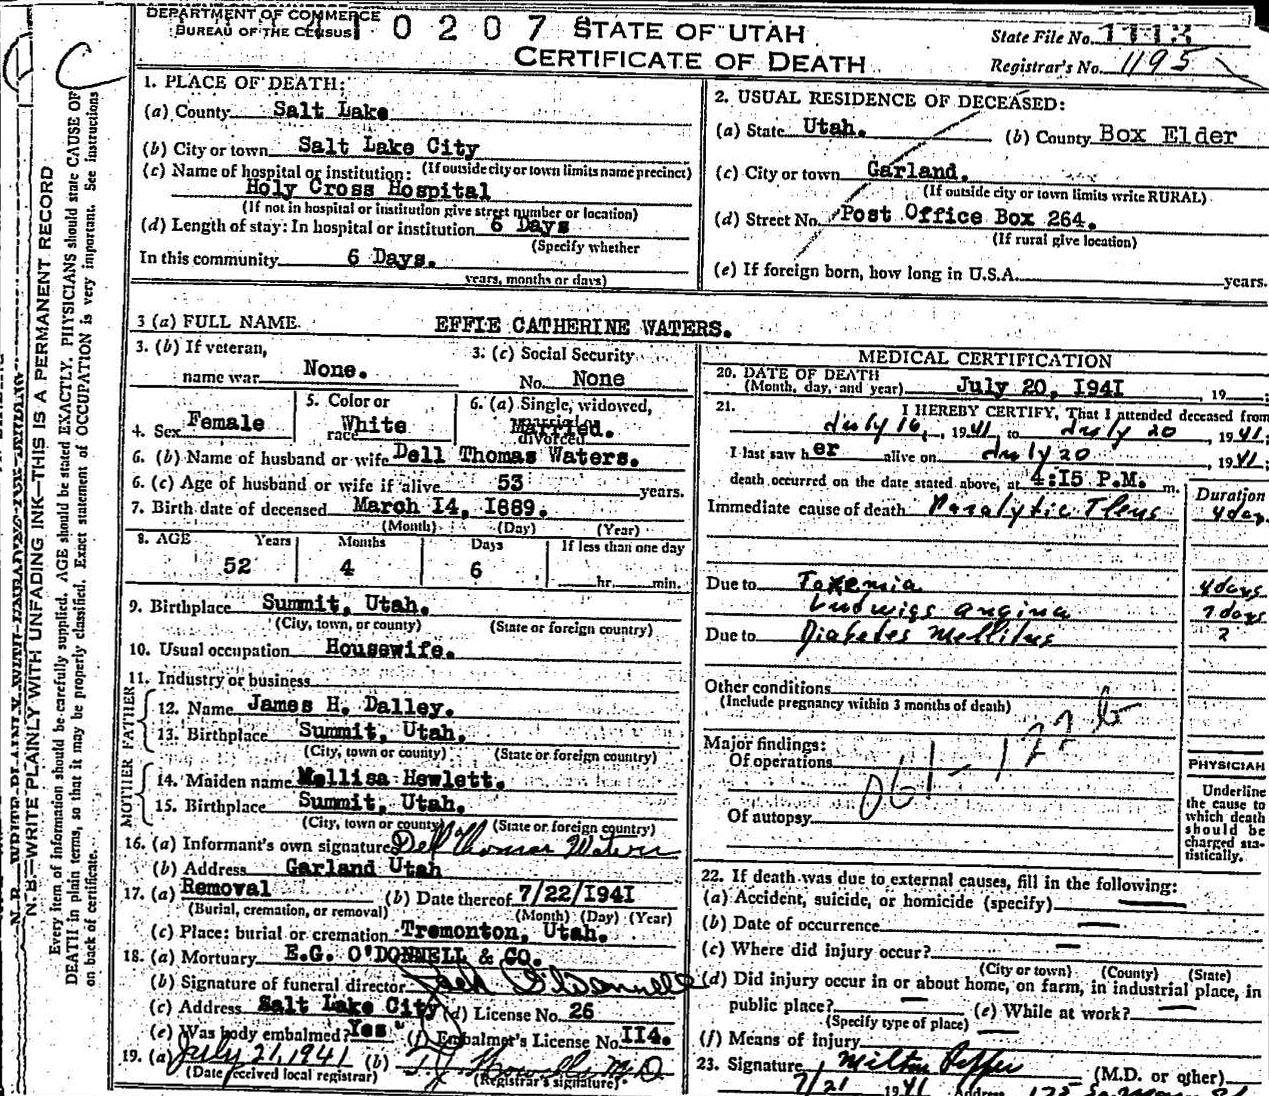 DEPARTMENT OF COMMERCE
BUREAU OF THE CENSUS
0 2 0 7
STATE OF UTAH
CERTIFICATE OF DEATH
State File No.
Registrar's No. 1195
N. B.—WRITE PLAINLY WITH UNFADING INK—THIS IS A PERMANENT RECORD
Every item of information should be carefully supplied. AGE should be stated EXACTLY. PHYSICIANS should state CAUSE OF
DEATH in plain terms, so that it may be properly classified. Exact statement of OCCUPATION is very important. See instructions
on back of certificate.
1. PLACE OF DEATH:
(a) County Salt Lake
(b) City or town Salt Lake City
(If outside city or town limits name precinct)
(c) Name of hospital or institution:
Holy Cross Hospital
(If not in hospital or institution give street number or location)
(d) Length of stay: In hospital or institution 6 Days
(Specify whether
In this community 6 Days.
years, months or days)
2. USUAL RESIDENCE OF DECEASED:
(a) State Utah. (b) County Box Elder
(c) City or town Garland.
(If outside city or town limits write RURAL)
(d) Street No. Post Office Box 264.
(If rural give location)
(e) If foreign born, how long in U.S.A. years.
3 (a) FULL NAME EFFIE CATHERINE WATERS.
3. (b) If veteran,
name war None.
3. (c) Social Security
No. None
4. Sex Female
5. Color or
race White
6. (a) Single, widowed,
married,
divorced
Married.
6. (b) Name of husband or wife Dell Thomas Waters.
6. (c) Age of husband or wife if alive 53 years.
7. Birth date of deceased March I4, I889.
(Month) (Day) (Year)
8. AGE Years Months Days If less than one day
52 4 6 hr. min.
9. Birthplace Summit, Utah.
(City, town, or county) (State or foreign country)
10. Usual occupation Housewife.
11. Industry or business
FATHER
12. Name James H. Dalley.
13. Birthplace Summit, Utah.
(City, town or county) (State or foreign country)
MOTHER
14. Maiden name Mellisa Hewlett.
15. Birthplace Summit, Utah.
(City, town or county) (State or foreign country)
16. (a) Informant's own signature Dell Thomas Waters
(b) Address Garland Utah
17. (a) Removal (b) Date thereof 7/22/I94I
(Burial, cremation, or removal) (Month) (Day) (Year)
(c) Place: burial or cremation Tremonton, Utah.
18. (a) Mortuary E.G. O'DONNELL & CO.
(b) Signature of funeral director O'Donnell
(c) Address Salt Lake City (d) License No. 26
(e) Was body embalmed? Yes (f) Embalmer's License No. II4.
19. (a) July 21, 1941 (b) M.D.
(Date received local registrar) (Registrar's signature)
MEDICAL CERTIFICATION
20. DATE OF DEATH
(Month, day, and year) July 20, I94I, 19
21. I HEREBY CERTIFY, That I attended deceased from
July 16, 1941, to July 20, 1941;
I last saw her alive on July 20, 1941
death occurred on the date stated above, at 4:I5 P.M. m.
Duration
Immediate cause of death Paralytic Ileus 4 days
Due to Toxemia 4 days
Ludwigs angina 7 days
Due to Diabetes Mellitus ?
Other conditions
(Include pregnancy within 3 months of death)
Major findings:
Of operations
061-
Of autopsy
PHYSICIAN
Underline
the cause to
which death
should be
charged sta-
tistically.
22. If death was due to external causes, fill in the following:
(a) Accident, suicide, or homicide (specify) —
(b) Date of occurrence —
(c) Where did injury occur? —
(City or town) (County) (State)
(d) Did injury occur in or about home, on farm, in industrial place, in
public place? — (e) While at work? —
(Specify type of place)
(f) Means of injury —
23. Signature Milton Pepper (M.D. or other)
7/21 1941 Address